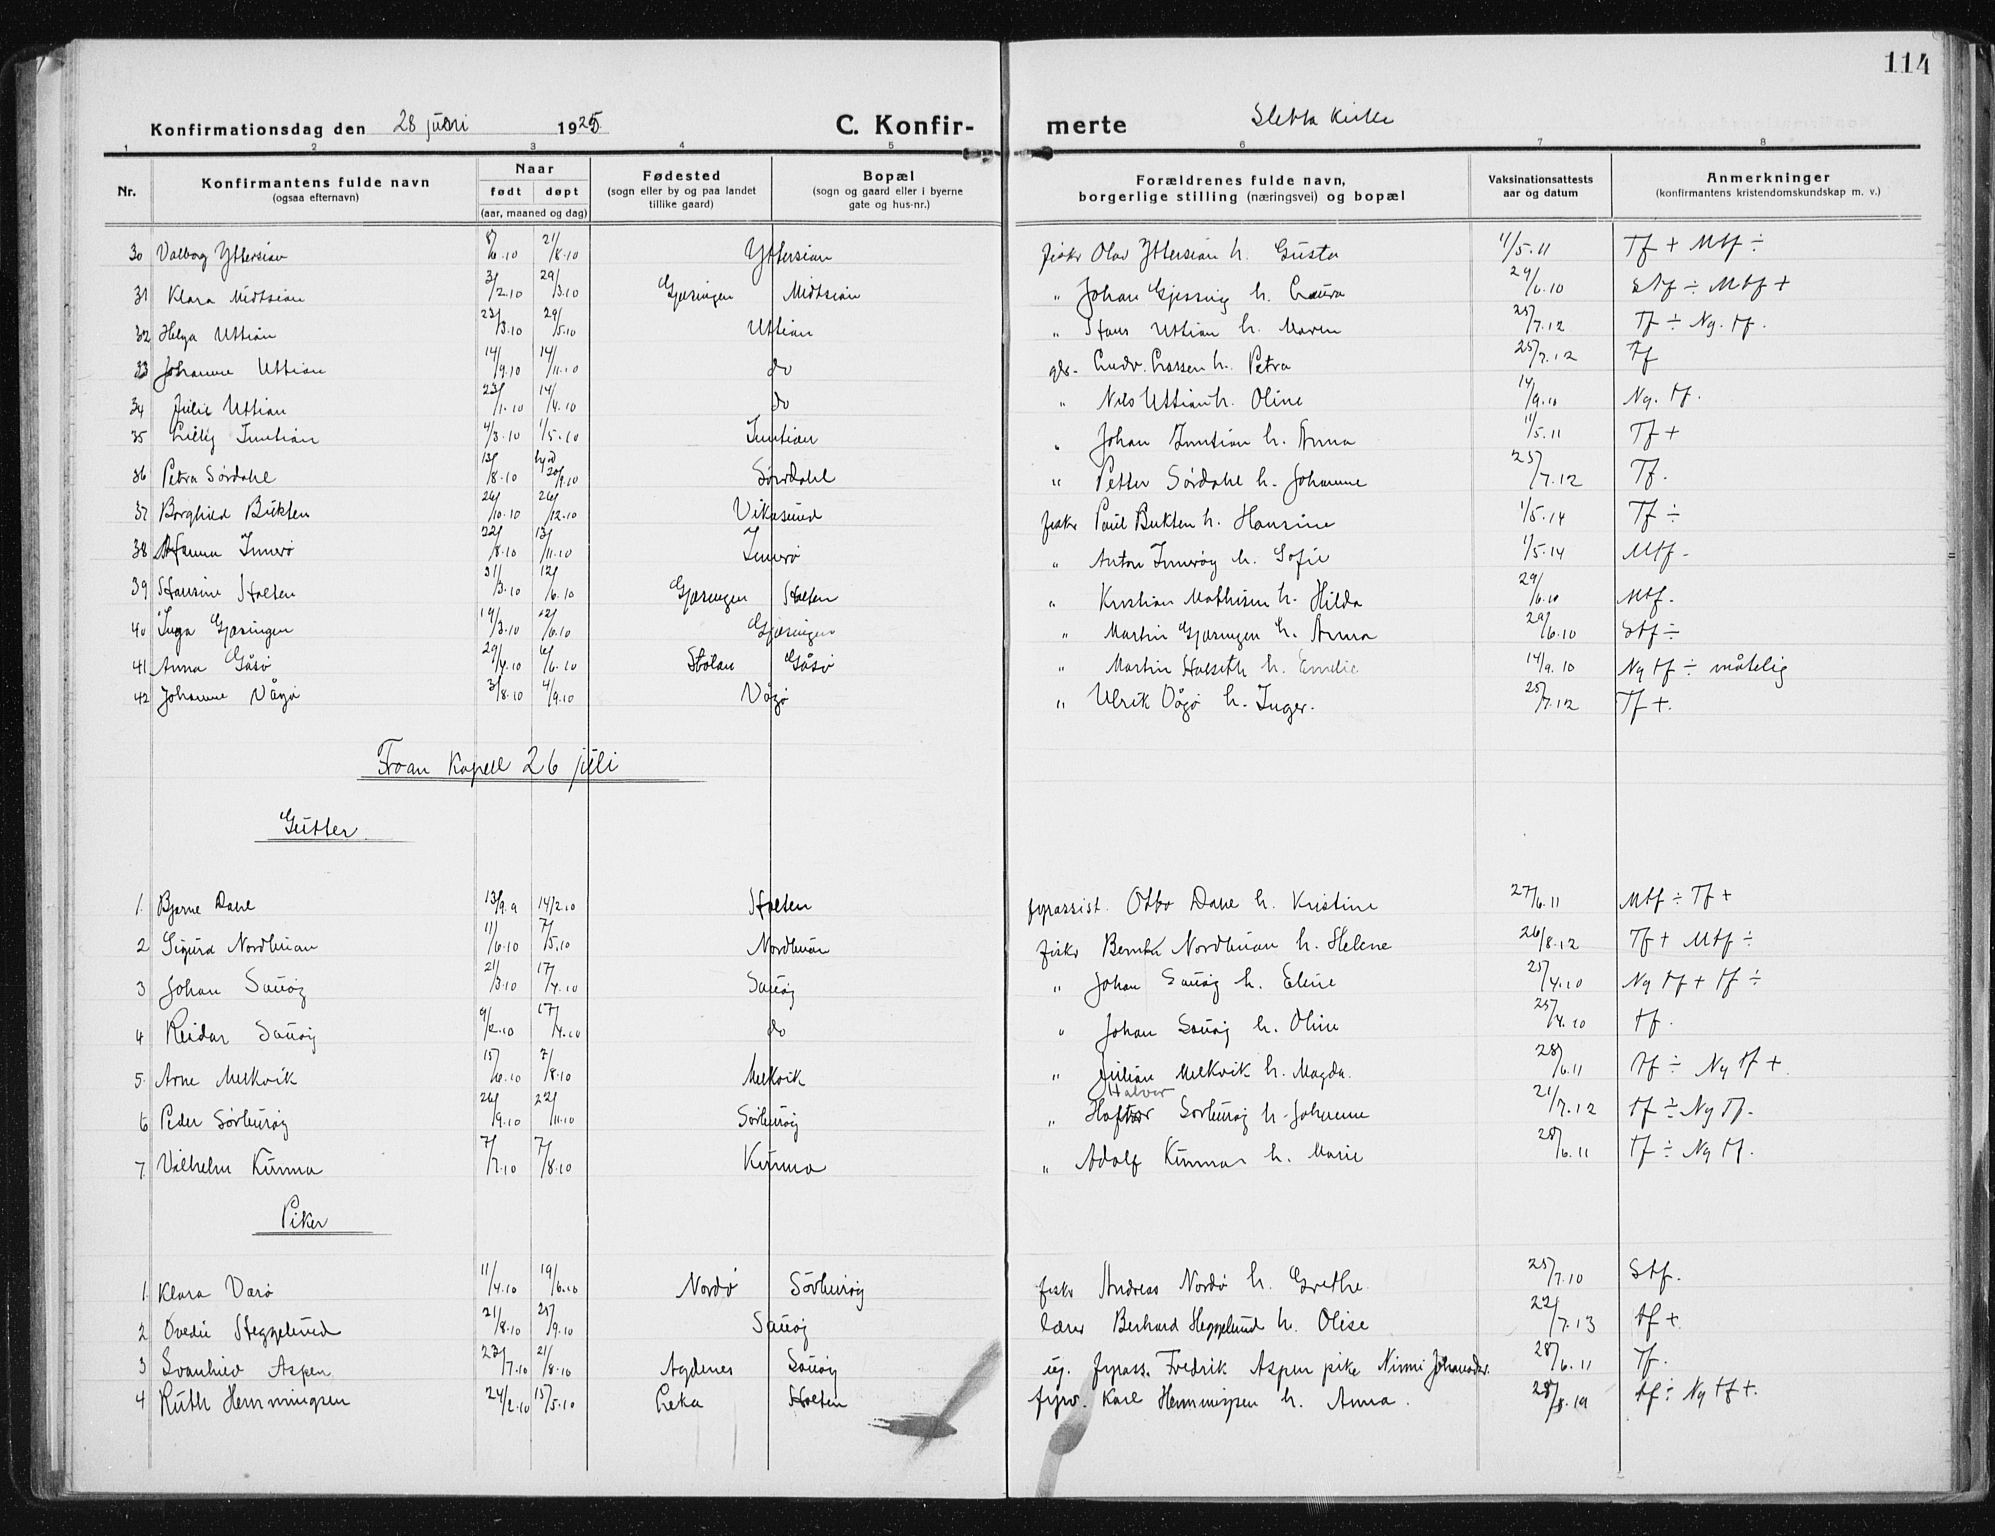 114
Konfirmationsdag den 28 juni 1925 C. Konfirmerte Sletta Kirke
1 2 3 4 5 6 7 8
Nr. Konfirmantens fulde navn (ogsaa efternavn) Naar født døpt (aar, maaned og dag) Fødested (sogn eller by og paa landet tillike gaard) Bopæl (sogn og gaard eller i byerne gate og hus-nr.) Forældrenes fulde navn, borgerlige stilling (næringsvei) og bopæl Vaksinationsattests aar og datum Anmerkninger (konfirmantens kristendomskundskap m. v.)
30 Valborg Yttersian 8/6.10 21/8.10 Yttersian fisker Olav Yttersian h. Gusta 11/5.11 Tf + Mtf ÷
31 Klara Midtsian 3/2.10 29/3.10 Gjæsingen Midtsian " Johan Gjessing h. Laura 29/6.10 Stf ÷ Mtf +
32 Helga Uttian 23/3.10 29/5.10 Uttian " Hans Uttian h. Maren 25/7.12 Tf ÷ Ng. tf.
33 Johanne Uttian 14/9.10 14/11.10 do gbr. Ludv. Larsen h. Petra 25/7.12 Tf
34 Julie Uttian 23/1.10 14/4.10 do " Nils Uttian h. Oline 14/9.10 Ng. tf.
35 Lilly Inntian 4/3.10 1/5.10 Inntian " Johan Inntian h. Anna 11/5.11 Tf +
36 Petra Sørdahl 13/8.10 20/9.10 Sørdahl " Petter Sørdahl h. Johanne 25/7.12 Tf.
37 Borghild Bukten 26/10.10 26/12.10 Vikasund fisker Paul Bukten h. Hansine 1/5.14 Tf ÷
38 Anna Innerø 22/8.10 13/11.10 Innerø " Anton Innerøy h. Sofie 1/5.14 Mtf.
39 Hansine Holten 31/3.10 12/6.10 Gjæsingen Holten " Kristian Mathisen h. Hilda 29/6.10 Mtf.
40 Inga Gjæsingen 19/3.10 12/6.10 Gjæsingen " Martin Gjæsingen h. Anna 29/6.10 Stf ÷
41 Anna Gåsø 29/4.10 6/6.10 Stolan Gåsø " Martin Holseth h. Emelie 14/9.10 Ng tf ÷ måtelig
42 Johanne Vågø 3/8.10 4/9.10 Vågø " Ulrik Vågø h. Inger. 25/7.12 Tf +.
Froan Kapell 26 juli
Gutter
1. Bjarne Dahl 13/9.9 14/2.10 Holten fyrassist. Otto Dahl h. Kristine 27/6.11 Mtf ÷ Tf +
2 Sigurd Nordbuan 11/6.10 7/5.10 Nordbuan fisker Berntha Nordbuan h. Helene 26/8.12 Tf + Mtf ÷
3 Johan Sauøy 21/3.10 17/4.10 Sauøy " Johan Sauøy h. Eline 25/4.10 Ng tf + tf ÷
4 Reidar Sauøy 9/2.10 17/4.10 do " Johan Sauøy h. Oline 25/4.10 tf.
5. Arne Melkvik 15/6.10 7/8.10 Melkvik " Julian Melkvik h. Magda. 28/6.11 tf ÷ Ng tf +
6 Peder Sørburøy 26/9.10 22/11.10 Sørburøy " Haftor Halvor Sørburøy h. Johanne 21/7.12 tf ÷ Ng tf.
7. Vilhelm Kunna 7/7.10 7/8.10 Kunna " Adolf Kunna h. Marie 28/6.11 Tf ÷ Ng tf.
Piker
1. Klara Varø 11/4.10 19/6.10 Nordø Sørburøy fisker Andreas Nordø h. Grethe. 25/7.10 Stf.
2 Ovedie Heggelund 21/8.10 25/9.10 Sauøy lærer Berhard Heggelund h. Olise 22/7.13 tf +.
3 Svanhild Aspen 23/7.10 21/8.10 Agdenes Sauøy ug. fyrass. Fredrik Aspen pike Nimi Johansdr. 28/6.11 Tf.
4 Ruth Hemmingsen 24/2.10 15/5.10 Leka Holten fyrv. Karl Hemmingsen h. Anna. 28/8.19 tf ÷ Ng tf +.